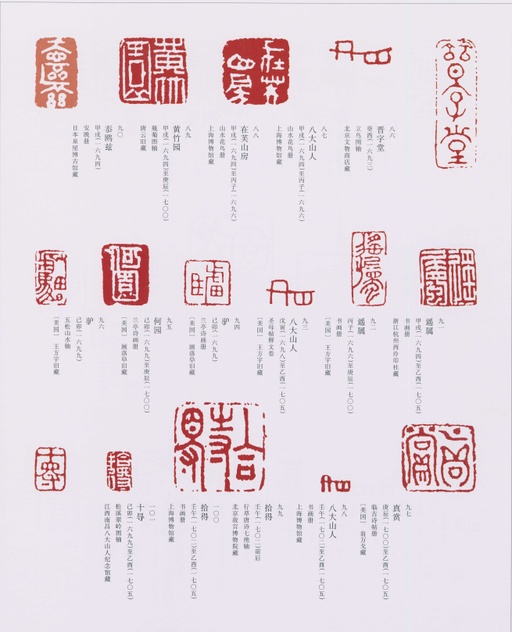 八六
晋字堂
癸酉(一六九三)
立鸟图轴
北京文物商店藏
八七
八大山人
甲戌(一六九四)至丙子(一六九六)
山水花鸟册
上海博物馆藏
八八
在芙山房
甲戌(一六九四)至丙子(一六九六)
山水花鸟册
上海博物馆藏
八九
黄竹园
甲戌(一六九四)至庚辰(一七〇〇)
唐云旧藏
九〇
甲戌(一六九四)
安晚册
日本泉屋博古馆藏
九一
遥属
甲戌(一六九四)至乙酉(一七〇五)
书画册
浙江杭州西泠印社藏
九二
遥属
丙子(一六九六)至庚辰(一七〇〇)
书画册
[美国] 王方宇旧藏
九三
八大山人
戊寅(一六九八)至乙酉(一七〇五)
[美国] 王方宇旧藏
九四
驴
己卯(一六九九)
兰亭诗画册
九五
何园
己卯(一六九九)至庚辰(一七〇〇)
兰亭诗画册
九六
驴
己卯(一六九九)
五松山水轴
[美国] 王方宇旧藏
九七
真赏
庚辰(一七〇〇)至乙酉(一七〇五)
临古诗帖册
[美国] 翁万戈藏
九八
八大山人
壬午(一七〇二)至乙酉(一七〇五)
书画册
上海博物馆藏
九九
拾得
壬午(一七〇二)
行草唐诗七绝轴
北京故宫博物院藏
一〇〇
拾得
壬午(一七〇二)至乙酉(一七〇五)
书画册
上海博物馆藏
一〇一
十得
己卯(一六九九)至乙酉(一七〇五)
松溪翠岭图轴
江西南昌八大山人纪念馆藏